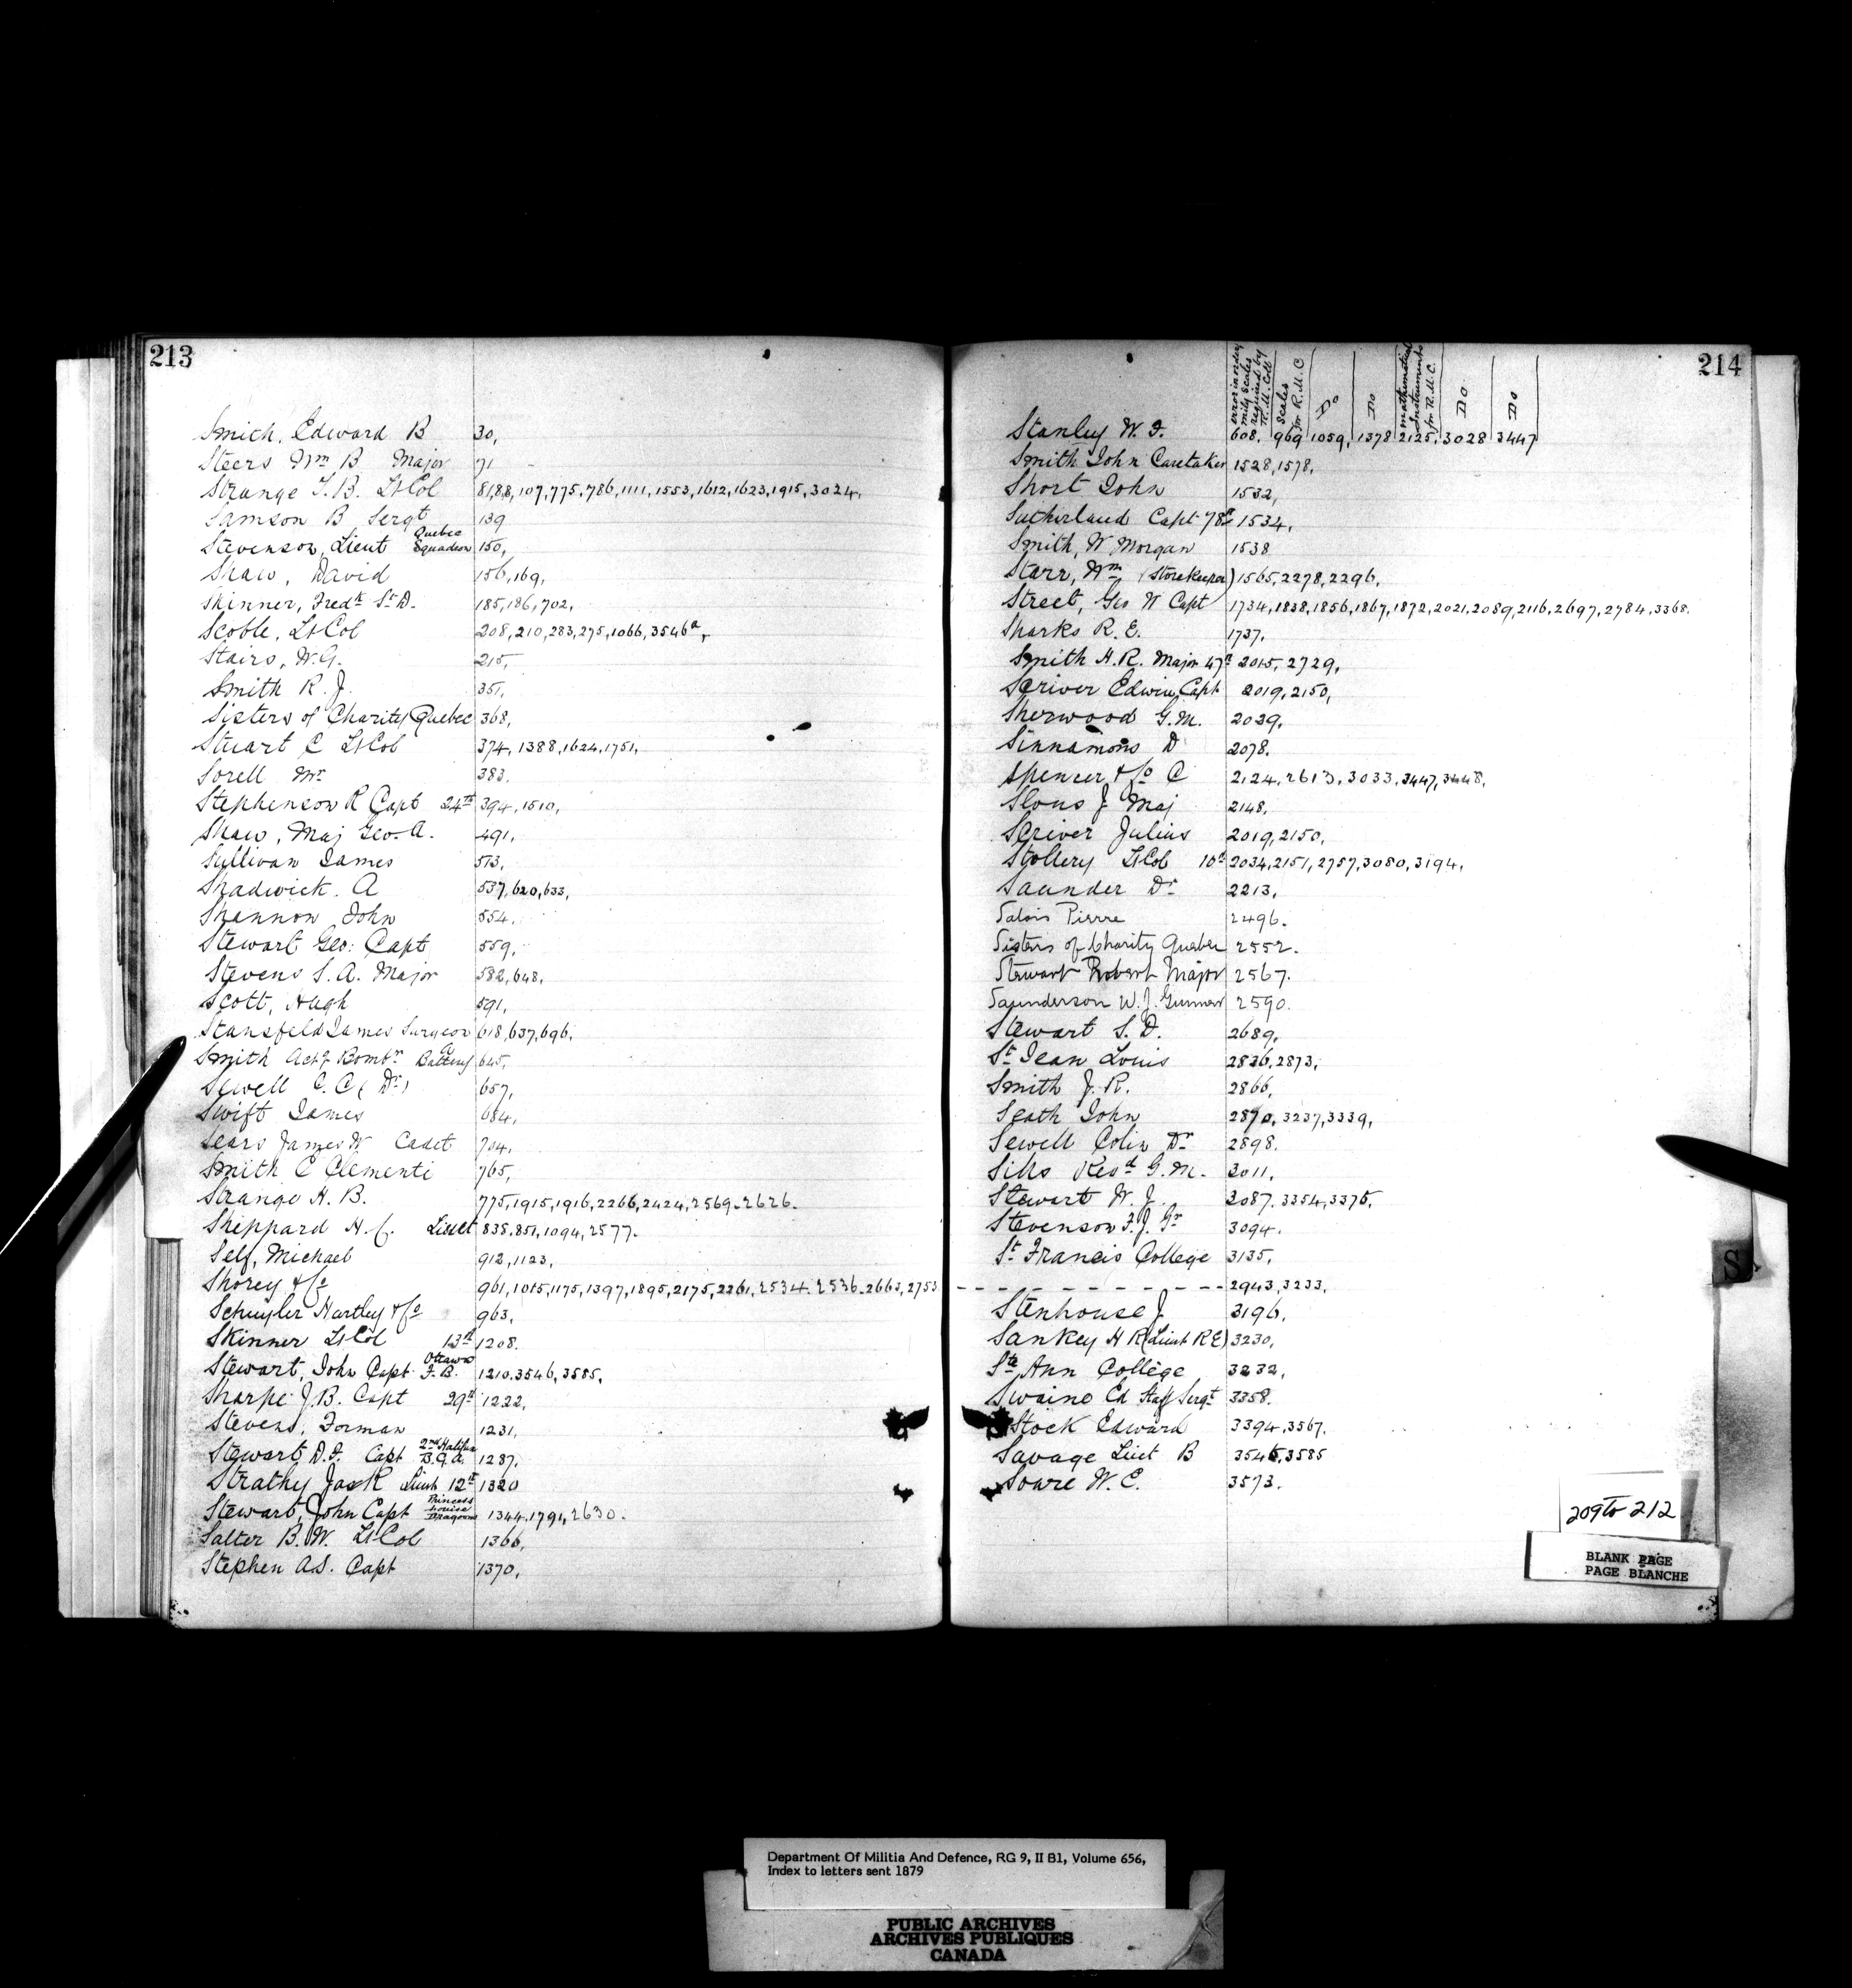 213
Smith, Edward B 30,
Steers Wm B Major 71
Strange T. B. Lt Col 81,88,107,775,786,1111,1553,1612,1623,1915,3024,
Samson B Sergt 139
Stevenson, Lieut Quebec Squadron 150,
Shaw, David 156,169,
Skinner, Fredk St D. 185,186,702,
Scoble, Lt Col 208,210,283,275,1066,3546a,
Stairs, W.G. 215,
Smith R. J. 351,
Sisters of Charity Quebec 368,
Stuart C Lt Col 374, 1388,1624,1751,
Sorell Mr 383.
Stephenson R Capt 24th 394,1510,
Shaw, Maj Geo. A. 491,
Sullivan James 513,
Shadwick. A 537,620,633,
Shannon John 554,
Stewart Geo: Capt 559,
Stevens S. A. Major 582,648,
Scott, Hugh 591,
Stansfeld James Surgeon 618,637,696,
Smith Actg Bombr A Battery 645,
Sewell C. C (Dr) 657,
Swift James 684,
Sears James W Cadet 704,
Smith C Clementi 765,
Strange H. B. 775,1915,1916,2266,2424,2569.2626.
Sheppard H. C. Lieut 835,851,1094,2577.
Self, Michael 912,1123,
Shorey & Co 961,1015,1175,1397,1895,2175,2261,2534.2536.2663,2753
Schuyler Hartley & Co 963,
Skinner Lt Col 13th 1208.
Stewart, John Capt Ottawa F. B. 1210,3546,3585,
Sharpe J. B. Capt 29th 1222,
Stevens, Forman 1231,
Stewart D. F. Capt 2nd Halifax B.G.A. 1287,
Strathy Jas R Lieut 12th 1320
Stewart, John Capt Princess Louise Dragoons 1344,1791,2630.
Salter B. W. Lt Col 1366,
Stephen A.S. Capt 1370,
214
error in order mily scales required by R. M. Coll
Scales for R.M.C
Do
Do
mathematical Instruments for R.M.C.
Do
Do
Stanley W. F. 608, 969 1059, 1378 2125, 3028 3447
Smith John Caretaker 1528,1578,
Short John 1532,
Sutherland Capt 78th 1534,
Smith, W Morgan 1538
Starr, Wm (Storekeeper) 1565,2278,2296,
Street, Geo W Capt 1734,1838,1856,1867,1872,2021,2089,2116,2697,2784,3368.
Sparks R. E. 1737.
Smith H. R. Major 47th 2015, 2729,
Scriver Edwin, Capt 2019,2150,
Sherwood G. M. 2039,
Sinnamons D 2078.
Spencer & Co C 2124,2613,3033,3447,3448,
Slous J Maj 2148,
Scriver Julius 2019,2150,
Stollery Lt Col 10th 2034,2151,2757,3080,3194,
Saunder Dr 2213,
Salois Pierre 2496.
Sisters of Charity Quebec 2552.
Stewart Robert Major 2567.
Saunderson W. J. Gunner 2590.
Stewart S. D. 2689,
St Jean Louis 2836,2873,
Smith J. R. 2866,
Seath John 2870, 3237,3339,
Sewell Colin Dr 2898.
Sills Revd G. M. 3011,
Stewart W. J. 3087.3354,3375,
Stevenson F. J. Gr 3094.
St Francis College 3135,
- - - - - - - - - - - 2943,3233,
Stenhouse J 3196,
Sankey H R (Lieut R E) 3230,
Ste Ann College 3232,
Swaine Ed Staff Sergt 3358.
Stock Edward 3394,3567.
Savage Lieut B 3546,3585
Sowre W. E. 3573.
S
209 to 212
BLANK PAGE
PAGE BLANCHE
Department Of Militia And Defence, RG 9, II B1, Volume 656,
Index to letters sent 1879
PUBLIC ARCHIVES
ARCHIVES PUBLIQUES
CANADA